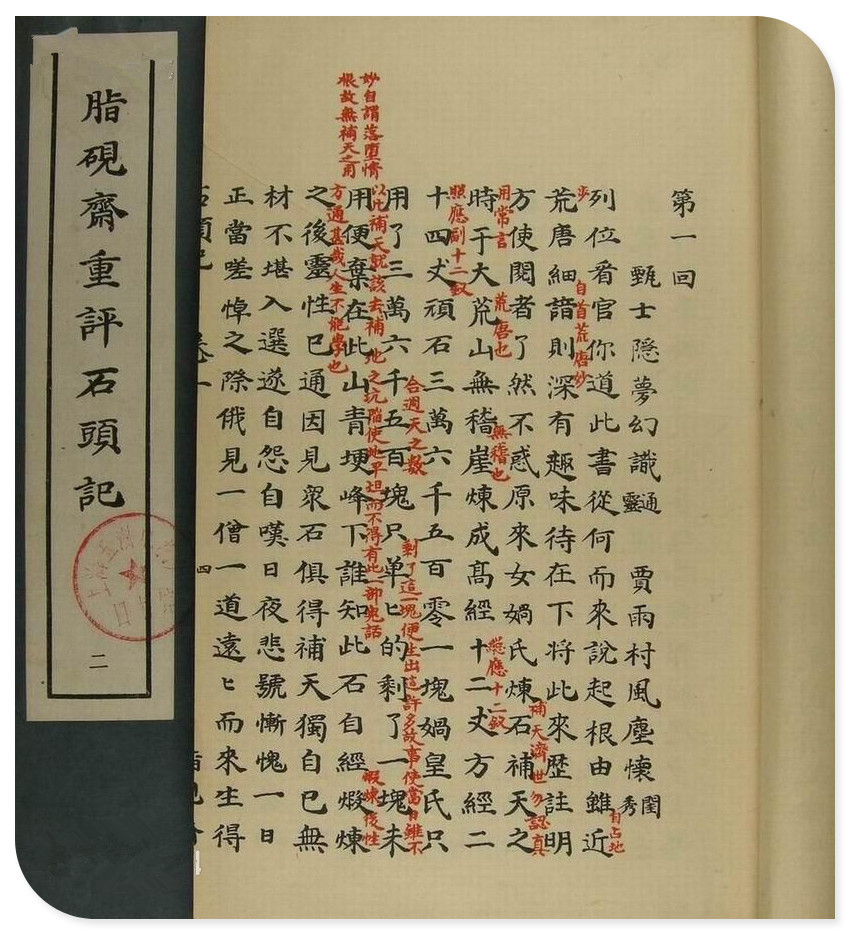 脂硯齋重評石頭記
二
第一回
甄士隐夢幻識通靈 賈雨村風塵懷閨秀
列位看官你道此書從何而來說起根由雖近
自占地
步
自首荒唐妙
荒唐細諳則深有趣味待在下將此來歴註明
補天濟世勿認真
用常言
方使閱者了然不惑原來女媧氏煉石補天之
荒唐也
無稽也
總應十二釵
時于大荒山無稽崖煉成高經十二丈方經二
照應副十二釵
十四丈頑石三萬六千五百零一塊媧皇氏只
合週天之數
剩了這一塊便生出這許多故事使當日雖不
以此補天就該去補地之坑陷使地平坦而不得有此一部鬼話
用了三萬六千五百塊只单ヒ的剩了一塊未
妙自謂落墮情
根故無補天之用
用便棄在此山青埂峰下誰知此石自經煅煉
煅煉後性
方通甚哉人生不能學也
之後靈性已通因見衆石俱得補天獨自己無
材不堪入選遂自怨自嘆日夜悲號慚愧一日
正當嗟悼之際俄見一僧一道遠ヒ而來生得
四